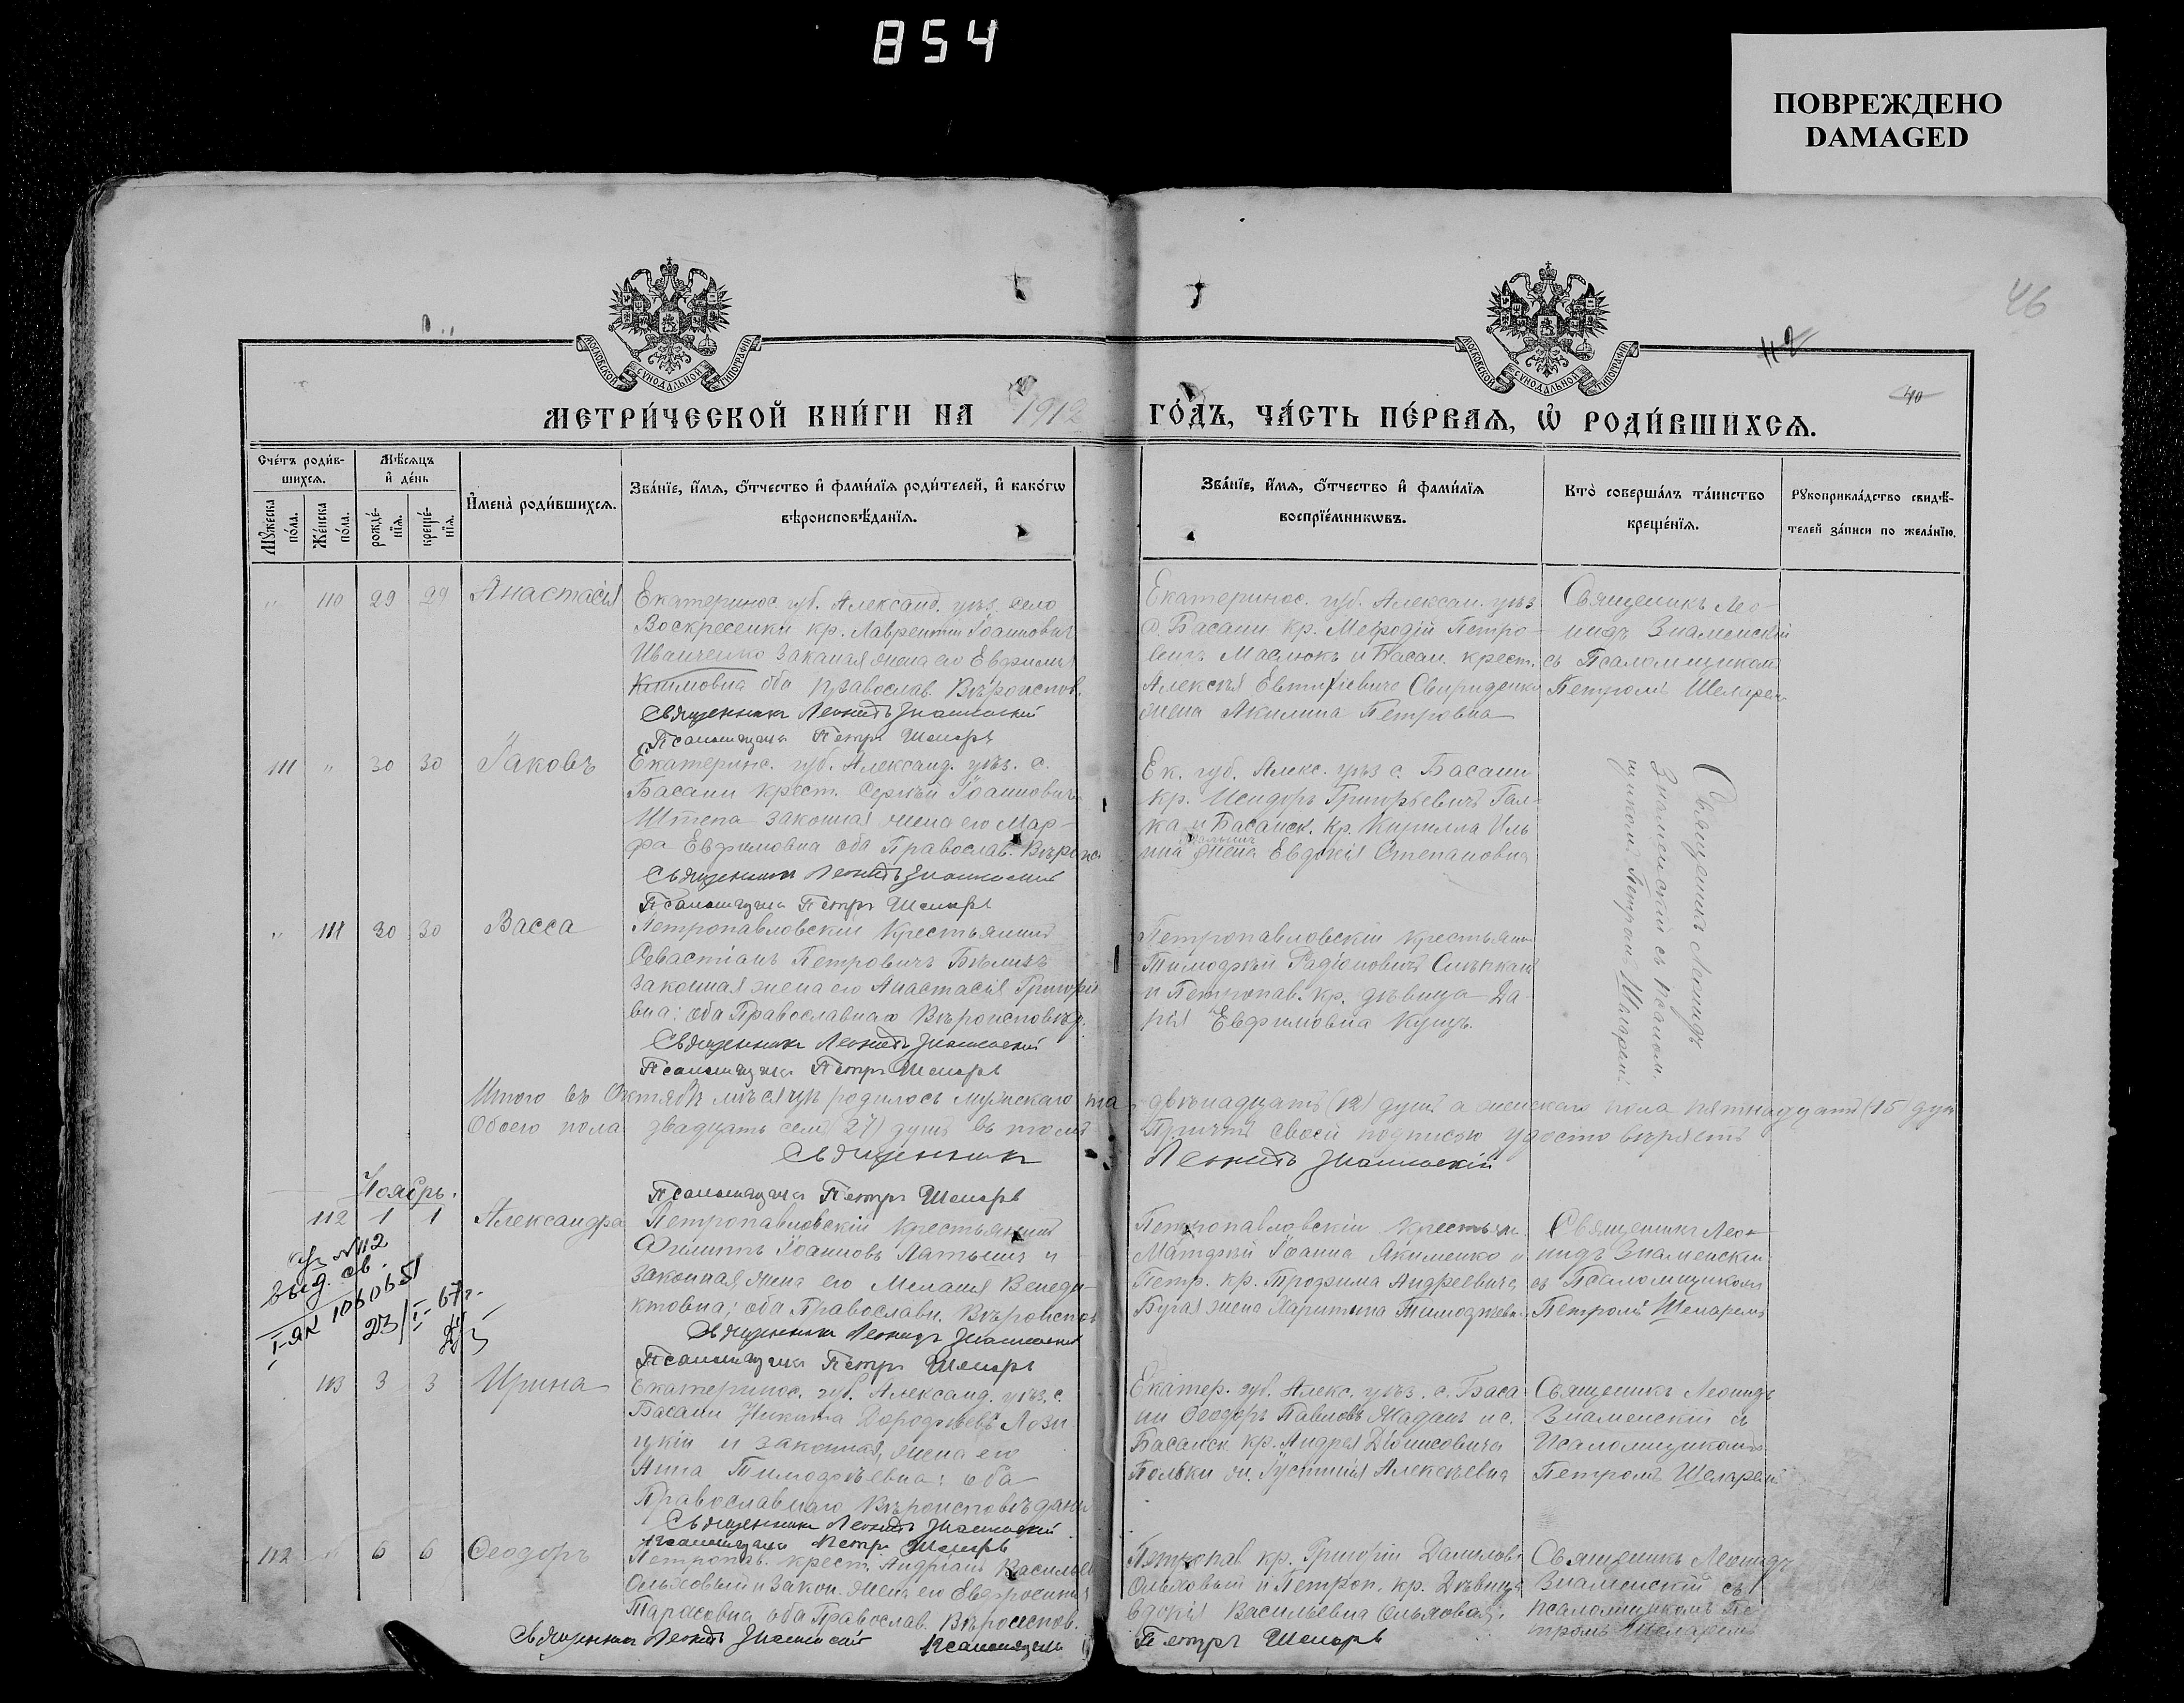 854
ПОВРЕЖДЕНО
DAMAGED
46
МОСКОВСКОЙ СУНОДАЛЬНОЙ ТИПОГРАФІИ
МОСКОВСКОЙ СУНОДАЛЬНОЙ ТИПОГРАФІИ
112
40
МЕТРИ́ЧЕСКОЙ КНИ́ГИ НА 1912 ГО́ДЪ, ЧА́СТЬ ПЕ́РВАЯ, Ѡ РОДИ́ВШИХСЯ.
Сче́тъ роди́в-
шихся.
Мѣ́сяцъ
и҆ де́нь
Му́жеска по́ла.
Же́нска по́ла.
рожде́-
нїя.
креще́-
нїя.
И҆мена̀ роди́вшихся.
Зва́нїе, и҆́мя, ѻ҆́тчество и҆ фами́лїя роди́телей, и҆ како́гѡ
вѣроисповѣ́данїя.
Зва́нїе, и҆́мя, ѻ҆́тчество и҆ фами́лїя
воспрїе́мникѡвъ.
Кто̀ соверша́лъ та́инство
креще́нїя.
Рукоприкла́дство свидѣ́-
телей за́писи по жела́нїю.
" 110 29 29 Анастасія
Екатеринос. губ. Александ. уѣз. село
Воскресенки кр. Лаврентій Іоанновичъ
Иванченко законая жена его Евфимія
Климовна оба православ. Вѣроиспов.
Священникъ Леонидъ Знаменскій
Псаломщикъ Петръ Шеларь
Екатеринос. губ. Алексан. уѣз
с. Басани кр. Меѳодій Петро-
вичъ Маслюкъ и Басан. крест.
Алексѣя Евтихіевича Свириденко
жена Акилина Петровна
Священикъ Лео-
нидъ Знаменскій
съ Псаломщикомъ
Петромъ Шеларем
111 " 30 30 Іаковъ
Екатеринс. губ. Александ. уѣз. с.
Басани крест. Сергѣй Іоанновичъ
Штепа законная жена его Мар-
фа Евфимовна оба Православ. Вѣроис
Священникъ Леонидъ Знаменскій
Псаломщикъ Петръ Шеларь
Ек. губ. Алекс. уѣз с. Басани
кр. Исидоръ Григорьевичъ Гал-
ка и Басанск. кр. Кирилла Иль
ина жена Евдокія Степановна
Священикъ Леонидъ
Знаменскій съ псалом.
щикомъ Петромъ Шеларемъ
" 111 30 30 Васса
Петропавловскій Крестьянинъ
Севастіанъ Петровичъ Бѣликъ
законная жена его Анастасія Григорі
вна: оба Православнаго Вѣроисповѣд.
Священникъ Леонидъ Знаменскій
Псаломщикъ Петръ Шеларь
Петропавловскій крестьянин
Тимофѣй Радіоновичъ
и Петропав. кр. дѣвица Да-
рія Евфимовна Куцъ.
Итого въ Октябрѣ мѣсяцѣ родилось мужскаго пола двѣнадцать (12) душъ а женскаго пола пятнадцать (15) душ
Обоего пола двадцать семь (27) душъ въ томъ Причтъ своей подписью удостовѣряетъ
Священникъ Леонидъ Знаменскій
Псаломщикъ Петръ Шеларь
Ноябрь.
112 1 1 Александра
Петропавловскій крестьянинъ
Филиппъ Іоанновъ Латышъ и
законная жена его Меланія Венеди-
ктовна; оба Православн. Вѣроиспов
Священникъ Леонидъ Знаменскій
Псаломщикъ Петръ Шеларь
Петропавловскій крестьян.
Матфѣй Іоанна Якименко и
Петр. кр. Трофима Андреевича
Бугая жена Харитина Тимофѣевн.
Священикъ Леон-
нидъ Знаменскій
съ Псаломщикомъ
Петромъ Шеларемъ
№112
выд. св.
I-ЯК 106065
23/I-67г.
113 3 3 Ирина
Екатеринос. губ. Александ. уѣз. с.
Басани Никита Дорофѣевъ Лози
цкій и законная жена его
Анна Тимофѣевна; оба
Православнаго Вѣроисповѣданія
Священникъ Леонидъ Знаменскій
Псаломщикъ Петръ Шеларь
Екатер. губ. Алекс. уѣз. с. Баса
ни Ѳеодоръ Павловъ Жаданъ и с.
Басанск. кр. Андрея Діонисовича
Польки ж. Іустинія Алексѣевна
Священикъ Леонидъ
Знаменскій съ
Псаломщикомъ
Петромъ Шеларемъ
112 " 6 6 Ѳеодоръ
Петропав. крест. Андріанъ Васильев
Ольховый и Закон. жена его Евфросинія
Тарасовна, оба Православ. Вѣроиспов.
Священникъ Леонидъ Знаменскій Псаломщикъ Петръ Шеларь
Петропав кр. Григорій Данилов
Ольховый и Петроп. кр. Дѣвица
Евдокія Васильевна Ольховая.
Священикъ Леонидъ
Знаменскій съ
псаломщикомъ Пе
тромъ Шеларемъ